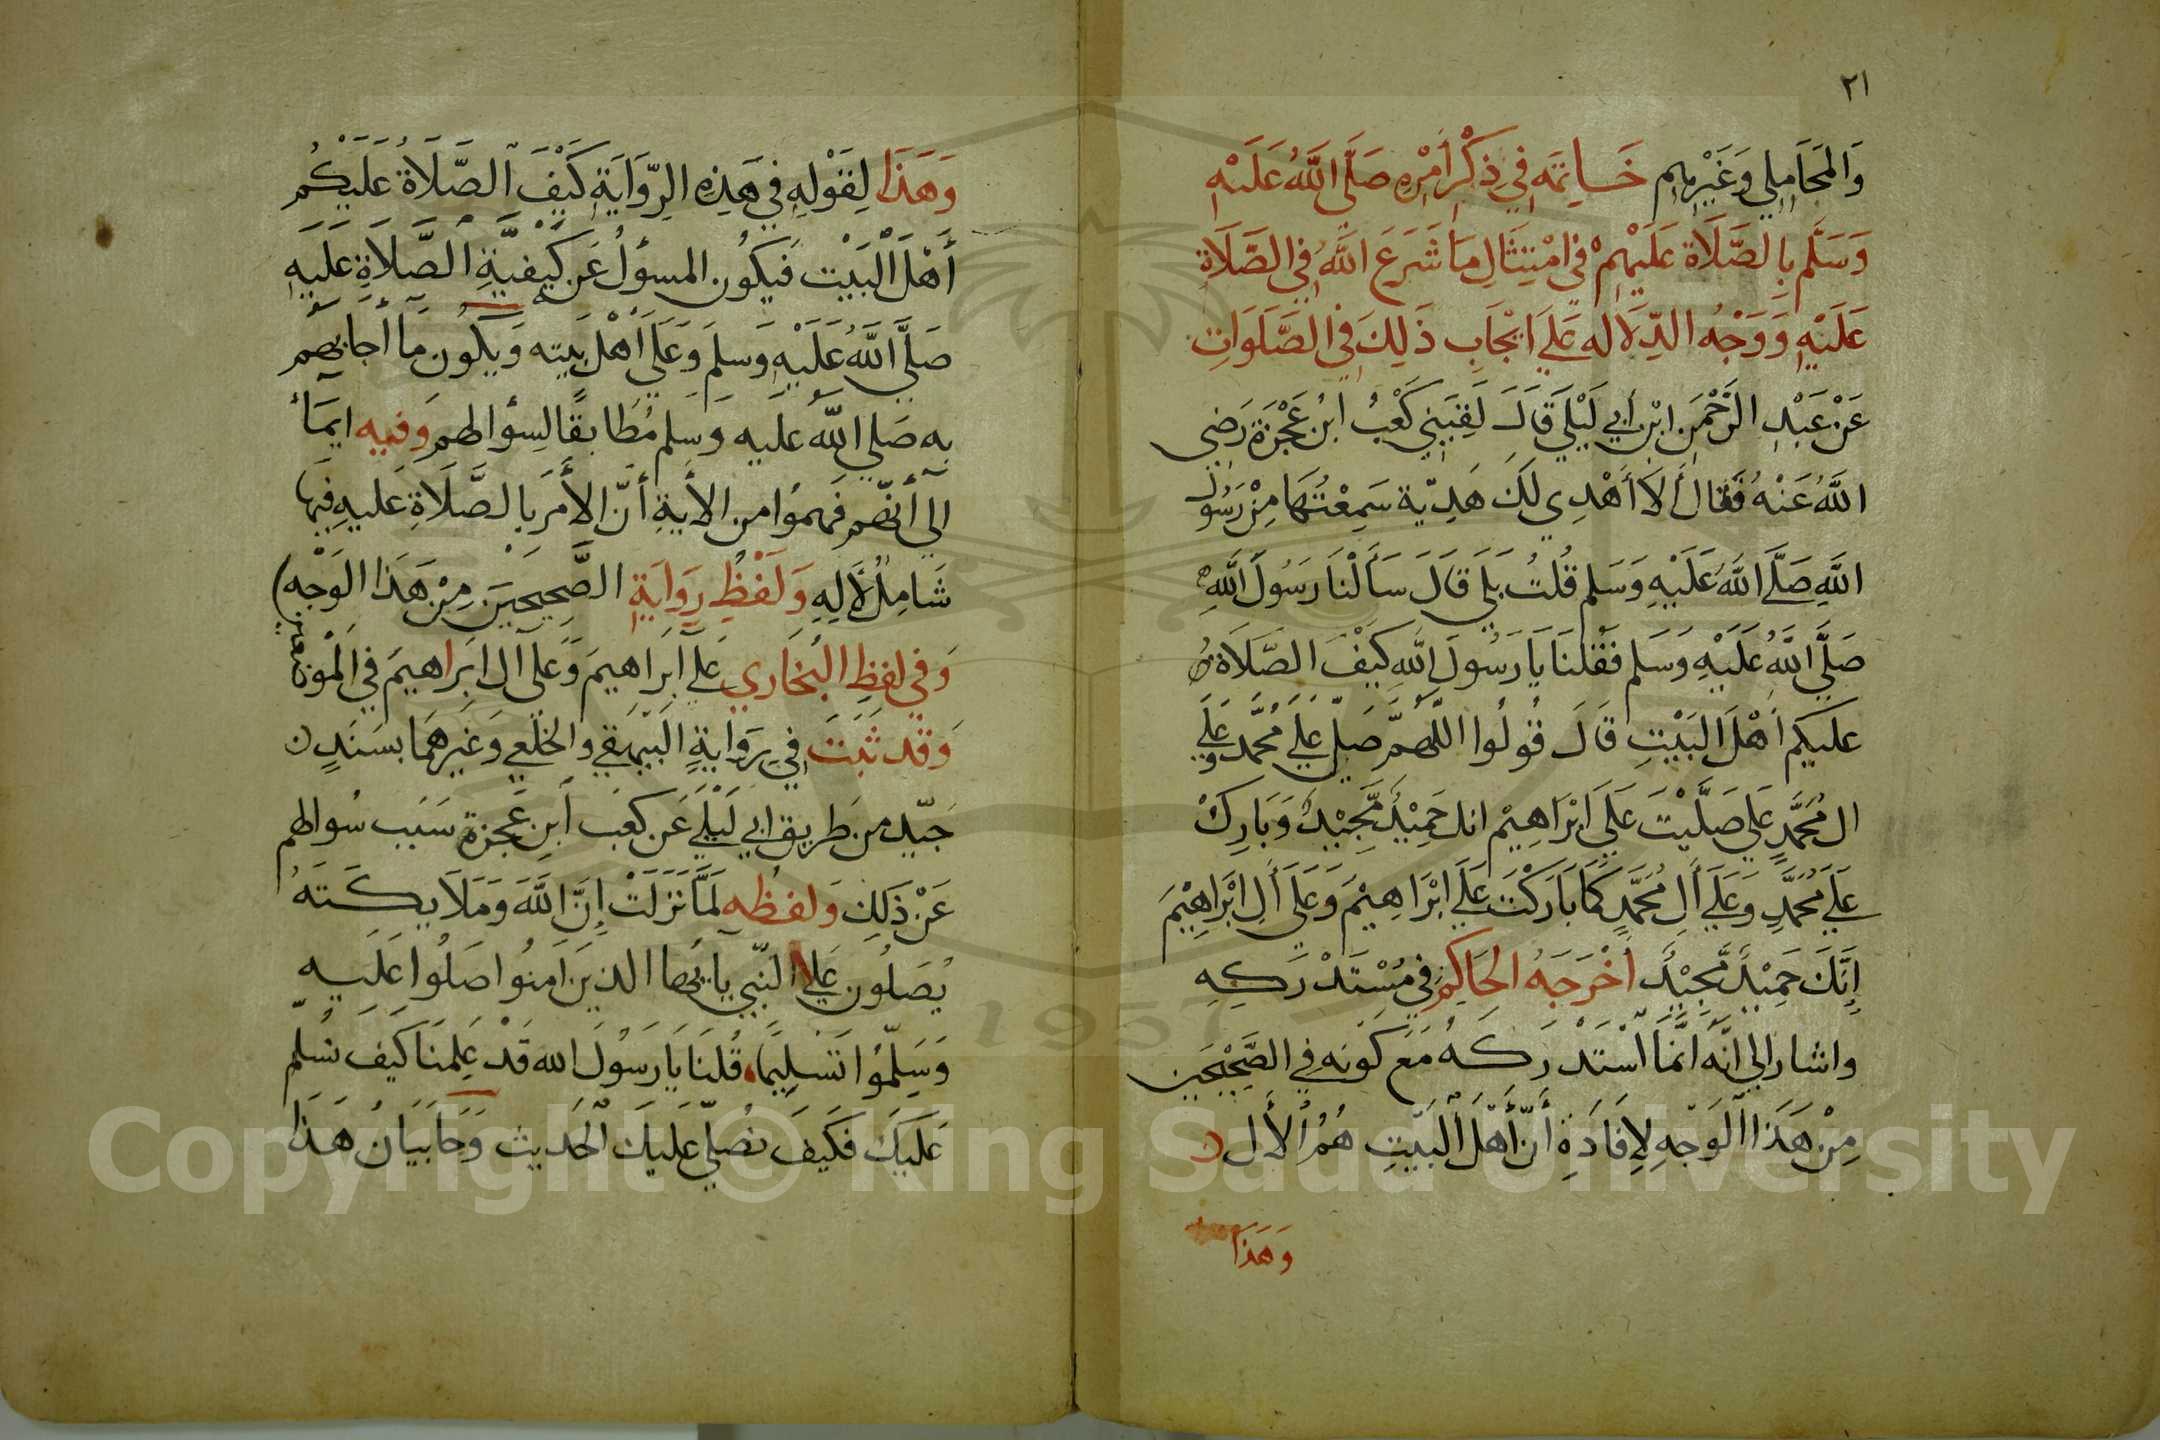 ٢١
وَالمَحَامِلِي وَغَيْرِهِم خَاتِمَه فِي ذِكْرِ أَمْرِهِ صَلَّى اللَّهُ عَلَيْهِ
وَسَلَّم بِالصَّلَاة عَلَيْهِمْ فِي امْتِثَالِ مَا شَرَعَ اللَّهُ فِي الصَّلَاةِ
عَلَيْهِ وَوَجْهُ الدِّلَاله عَلَي ايْجَابِ ذَلِكَ فِي الصَّلَوَاتِ
عَنْ عَبْدِ الرَّحْمَنِ ابْنِ أَبِي لَيْلَي قَالَ لَقِيَنِي كَعْبُ ابْنِ عَجْرَة رَضِي
اللَّهُ عَنْهُ فَقَالَ أَلَا أُهْدِي لَكَ هَدِيّة سَمِعْتُهَا مِنْ رَسُول
اللَّهِ صَلَّى اللَّهُ عَلَيْهِ وَسَلم قُلتُ بَلَي قَالَ سَأَلْنَا رَسُولَ اللَّهِ
صَلَّي اللَّهُ عَلَيْهِ وَسَلم فَقُلنَا يَا رَسُولَ اللَّهِ كَيْفَ الصَّلَاة
عليكم أَهْلَ البَيْتِ قَالَ قُولُوا اللَّهمَّ صَلِّ عَلَي مُحَمَّد وعَلَي
ال مُحَمَّدٍ عَلَي صَلَّيْتَ عَلَي ابْرَاهِيْم انك حَمِيْدٌ مَّجِيْدٌ وَبَارِكْ
عَلَي مُحَمَّدٍ وَعَلَي أَلِ مُحَمَّدٍ كَمَا بَارَكْتَ عَلَي ابْرَاهِيْمَ وَعَلَى أَلِ ابْرَاهِيْمَ
إِنَّكَ حَمِيْدٌ مَّجِيْدٌ أَخْرَجَهُ الحَاكِم فِي مُسْتَدْرَكِهِ
واشار الي انّه انّمَا اسْتَدْرَكهُ مَع كَونه في الصَّحِيْحَين
مِنْ هَذَا الوَجْهِ لِإِفَادَةِ أَنّ أَهْلَ البَيْتِ هُمُ الأَل
وَهَذَا
وَهَذَا لِقَوْلِهِ فِي هَذِهِ الرِّوَايَةِ كَيْفَ الصَّلَاةُ عَلَيْكُم
أَهْلَ الْبَيْت فَيَكُون المسؤلُ عَن كَيْفِيَّةِ الصَّلَاةِ عَلَيهِ
صَلَّي اللَّهُ عَلَيْهِ وَسلمَ وَعَلَي أَهْل بَيته وَيكُون مَا أَجَابهم
به صَلي اللَّه عليه وَسلم مُطَابقًا لسؤالهم وَفيه ايمَأ
الي أنّهم فَهمُوا من الأَيةِ أنّ الأَمرَ بالصَّلَاةِ عليهِ فِيهَا
شَامِلٌ لأَلِهِ وَلَفْظِ رِوَايَةِ الصَّحِيحَيْنِ مِنْ هَذَا الوَجْه
وَفي لفظِ البُخَاري عَلَي ابرَاهيمَ وَعَلَى آل ابرَاهيمَ في الْمَوْضعَين
وَقد ثَبَتَ فِي رِوَايَةِ البَيْهَقي والخلَعي وَغيرهمَا بسَنَدٍ
جَيّد من طَريق ابي لَيْلَي عَن كعَب ابنِ عَجرَة سَبَب سُوالهم
عَنْ ذَلِكَ وَلفظُه لَمَّا نَزَلَتْ إِنَّ اللَّهَ وَمَلَايِكَتَهُ
يُصَلُون عَلي النّبِي يا يُّها الذينَ امنُوا صَلُوا عَليهِ
وَسَلِّمُوا تَسْلِيمًا قُلنَا يَا رَسُولَ الله قَدْ عَلِمنَا كَيفَ نُسلّمُ
عَليكَ فكَيفَ نُصَلّي عَلَيكَ الحَديث وَجَا بَيَانُ هَذَا
1957
Copyright © King Saud University